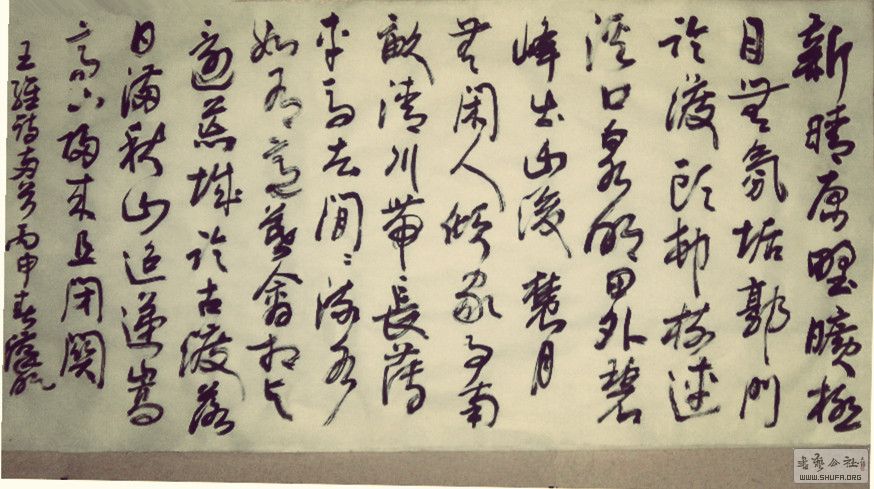 新晴原野曠極
目無氛垢郭門
臨渡頭村樹連
溪口白水明田外碧
峰出山後農月
無閑人傾家事南
畝清川帶長薄
車馬去閒〻流水
如有意暮禽相與
還荒城臨古渡落
日滿秋山迢遞嵩
高下歸來且閉關
王維詩兩首丙申春
书艺公社
WWW.SHUFA.ORG